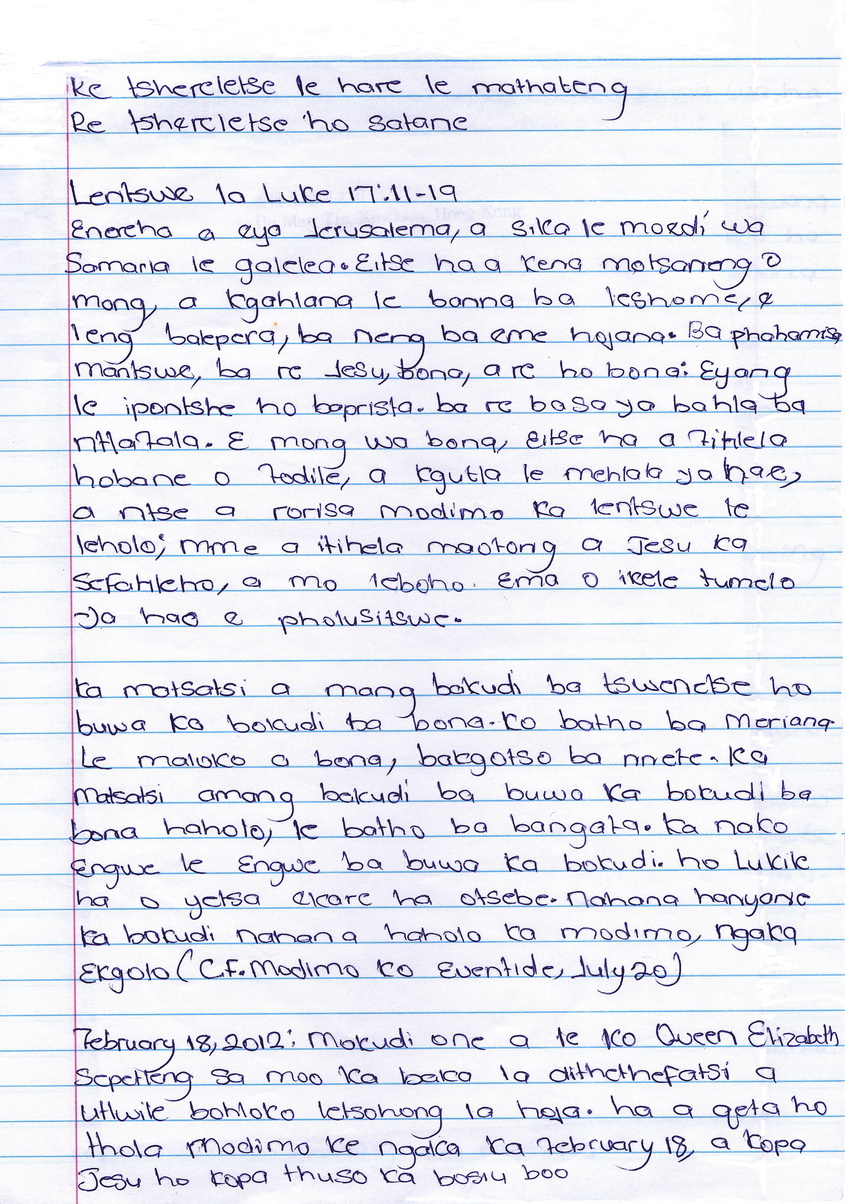 Ke tshereletse le hare le mathateng
Re tshereletse ho satane
Lentswe la Luke 17:11-19
Enereha a eya Jerusalema, a sika le moedi wa
Samaria le galelea. Eitse ha a kena motsaneng o
mong, a kgahlana le banna ba leshome, e
leng balepera, ba neng ba eme hojana. Ba phahamisa
mantswe, ba re Jesu, bona, a re ho bona: Eyang
le ipontshe ho baprista. ba re basa ya bahla ba
ntlafala. E mong wa bona, eitse ha a fihlela
hobane o fodile, a kgutla le mehlala ya hae,
a ntse a rorisa modimo ka lentswe le
leholo; mme a itihela maotong a Jesu ka
Sefahleho, a mo leboho. Ema o ikele tumelo
Ja hao e pholusitswe.
Ka matsatsi a mang bakudi ba tswenetse ho
buwa ka bokudi ba bona. ko batho ba meriana
Le maloko a bona, bakgotso ba nnete. Ka
Matsatsi amang bakudi ba buwa ka bokudi ba
bona haholo, le batho ba bangata. Ka nako
Engwe le Engwe ba buwa ka bokudi. ho Lukile
ha o yetsa ekare ha otsebe. Nahana hanyane
ka bokudi nahana haholo ka modimo, ngaka
Ekgolo (C.f. Modimo ko Eventide, July 20)
February 18, 2012: Mokudi one a le ko Queen Elizabeth
Sepetleng sa moo ka baka la dithethefatsi a
utlwile bohloko letsohong la hoja. ha a qeta ho
thola modimo ke ngaka ka February 18, a kopa
Jesu ho kopa thuso ka bosiu boo